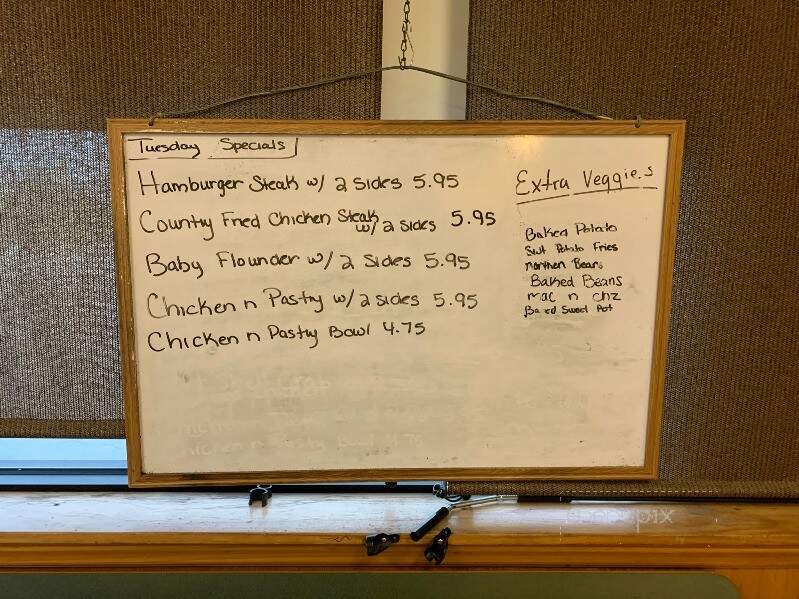 Tuesday Specials
Hamburger Steak w/ 2 sides 5.95
Country Fried Chicken Steak
w/ 2 sides 5.95
Baby Flounder w/ 2 sides 5.95
Chicken n Pastry w/ 2 sides 5.95
Chicken n Pastry Bowl 4.75
Extra Veggies
Baked Potato
Swt Potato Fries
northern Beans
Baked Beans
mac n chz
Baked Sweet Pot